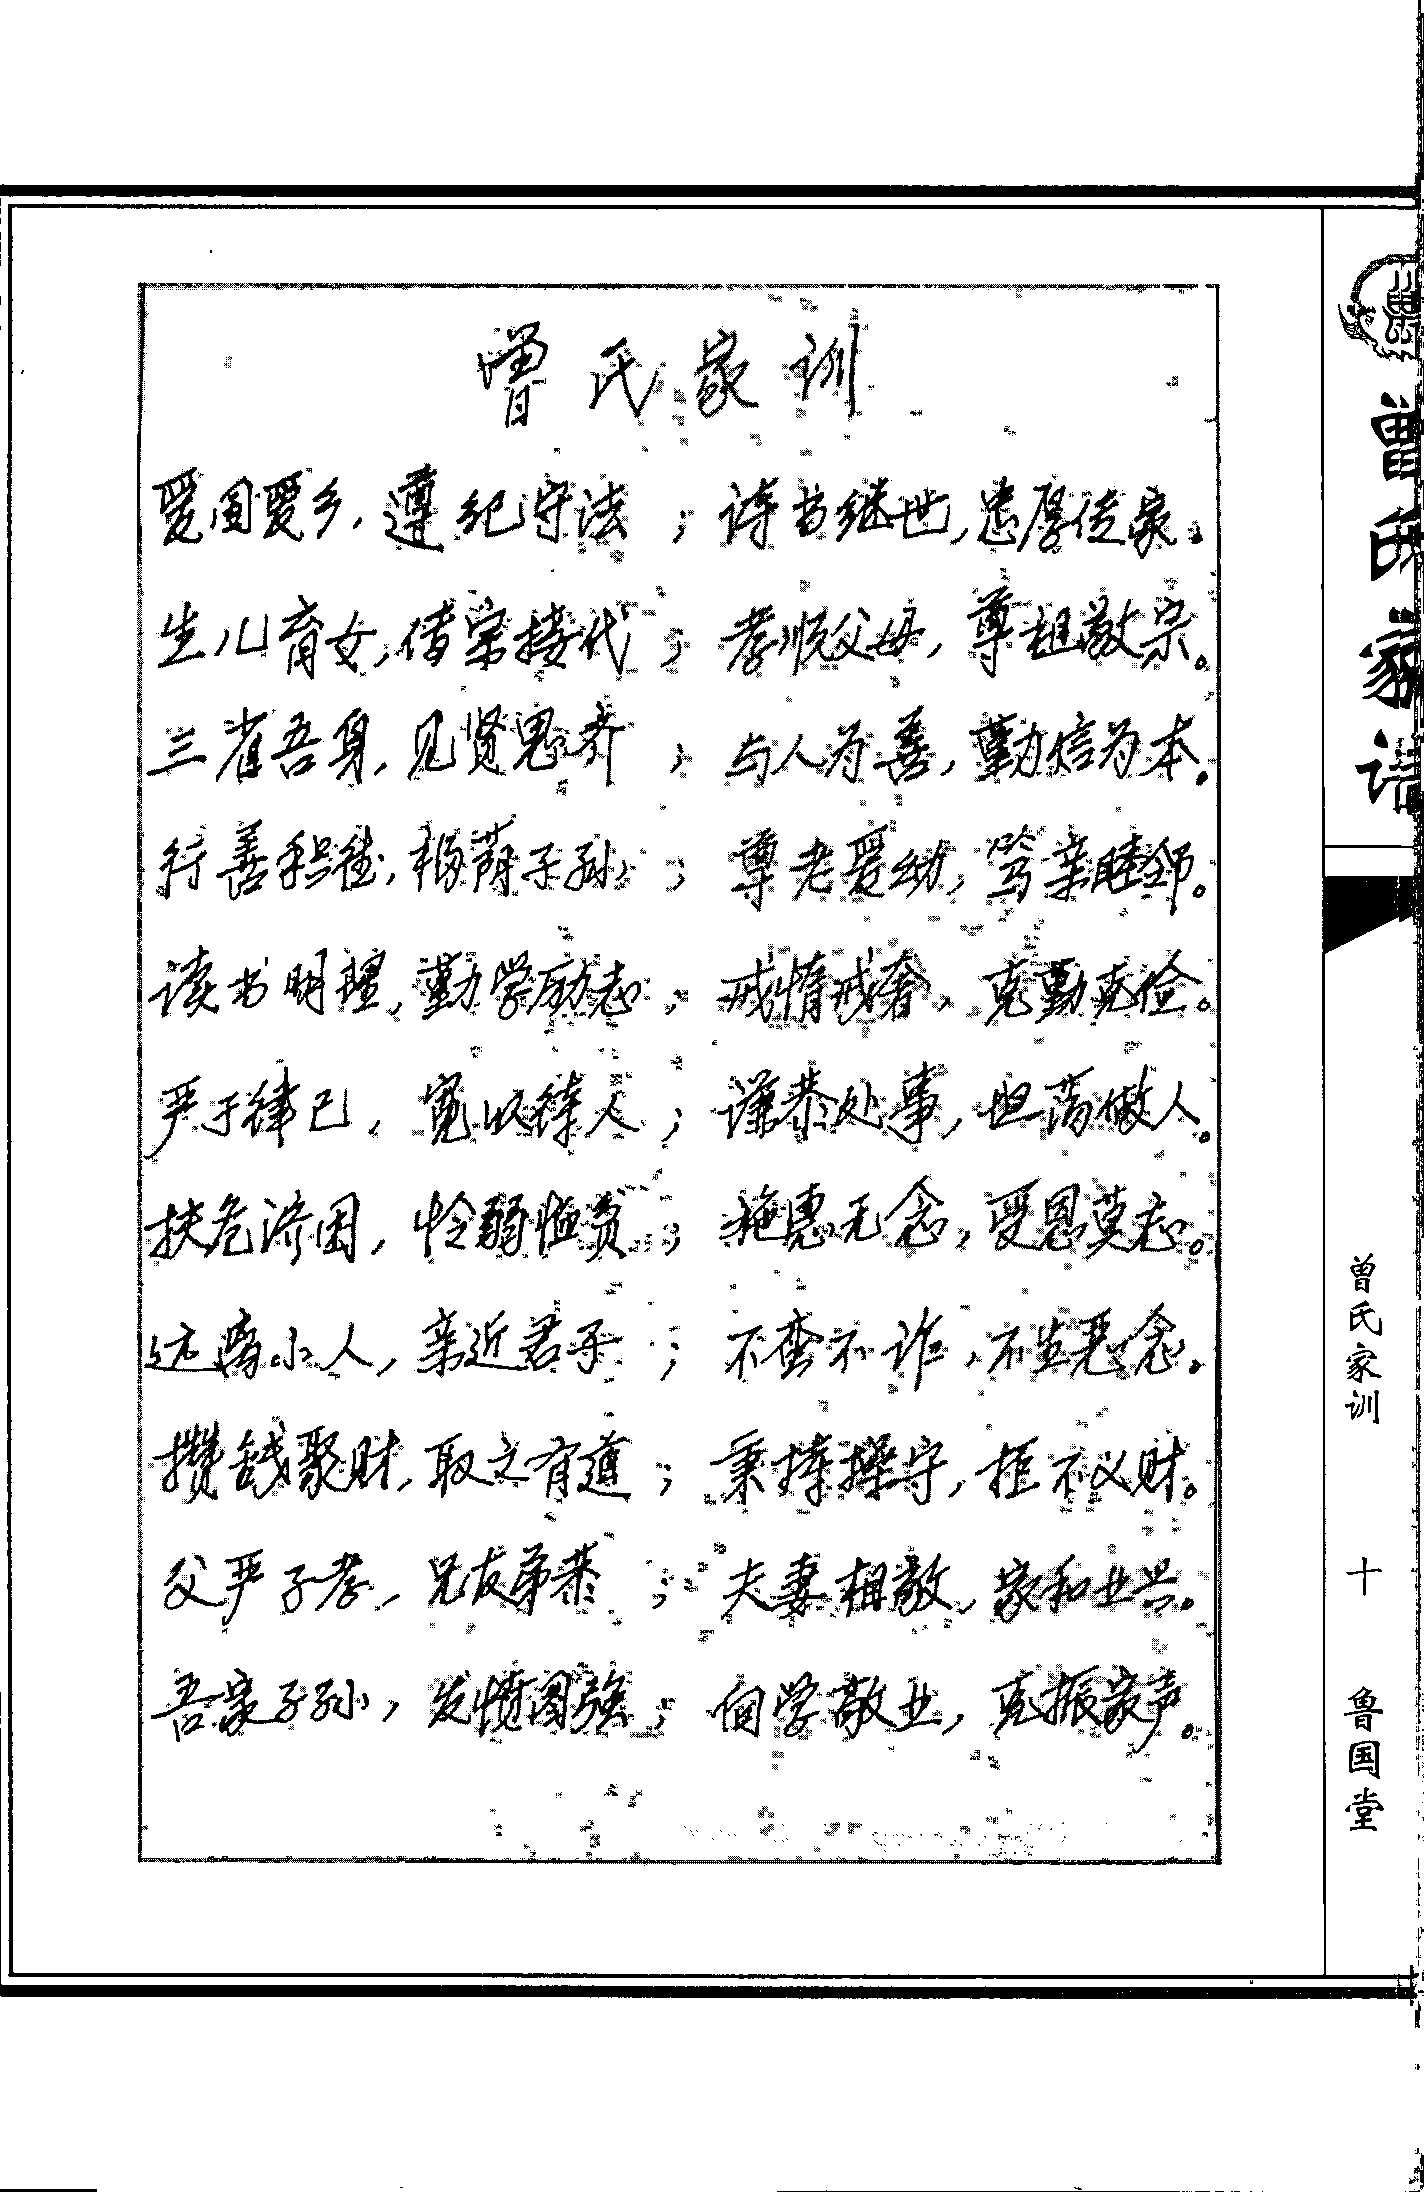 曾氏家训
爱国爱乡，遵纪守法；诗书继世，忠厚传家。
生儿育女，传宗接代；孝顺父母，尊祖敬宗。
三省吾身，见贤思齐；与人为善，勤信为本。
行善积德，福荫子孙；尊老爱幼，笃亲睦邻。
读书明理，勤学励志；戒惰戒奢，克勤克俭。
严于律己，宽以待人；谦恭处事，坦荡做人。
扶危济困，怜弱恤贫；施惠无念，受恩莫忘。
远离小人，亲近君子；不蛮不诈，不生恶念。
攒钱聚财，取之有道；秉持操守，拒不义财。
父严子孝，兄友弟恭；夫妻相敬，家和业兴。
吾家子孙，发愤图强；向学敬业，克振家声。
曾氏家谱
曾氏家训
十
鲁国堂